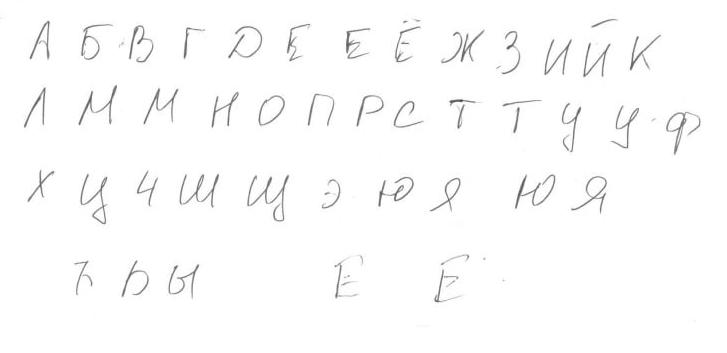 А Б В Г Д Е Е Ё Ж З И Й К
Л М М Н О П Р С Т Т У У Ф
Х Ц Ч Ш Щ Э Ю Я Ю Я
Ъ Ь Ы Е Ё